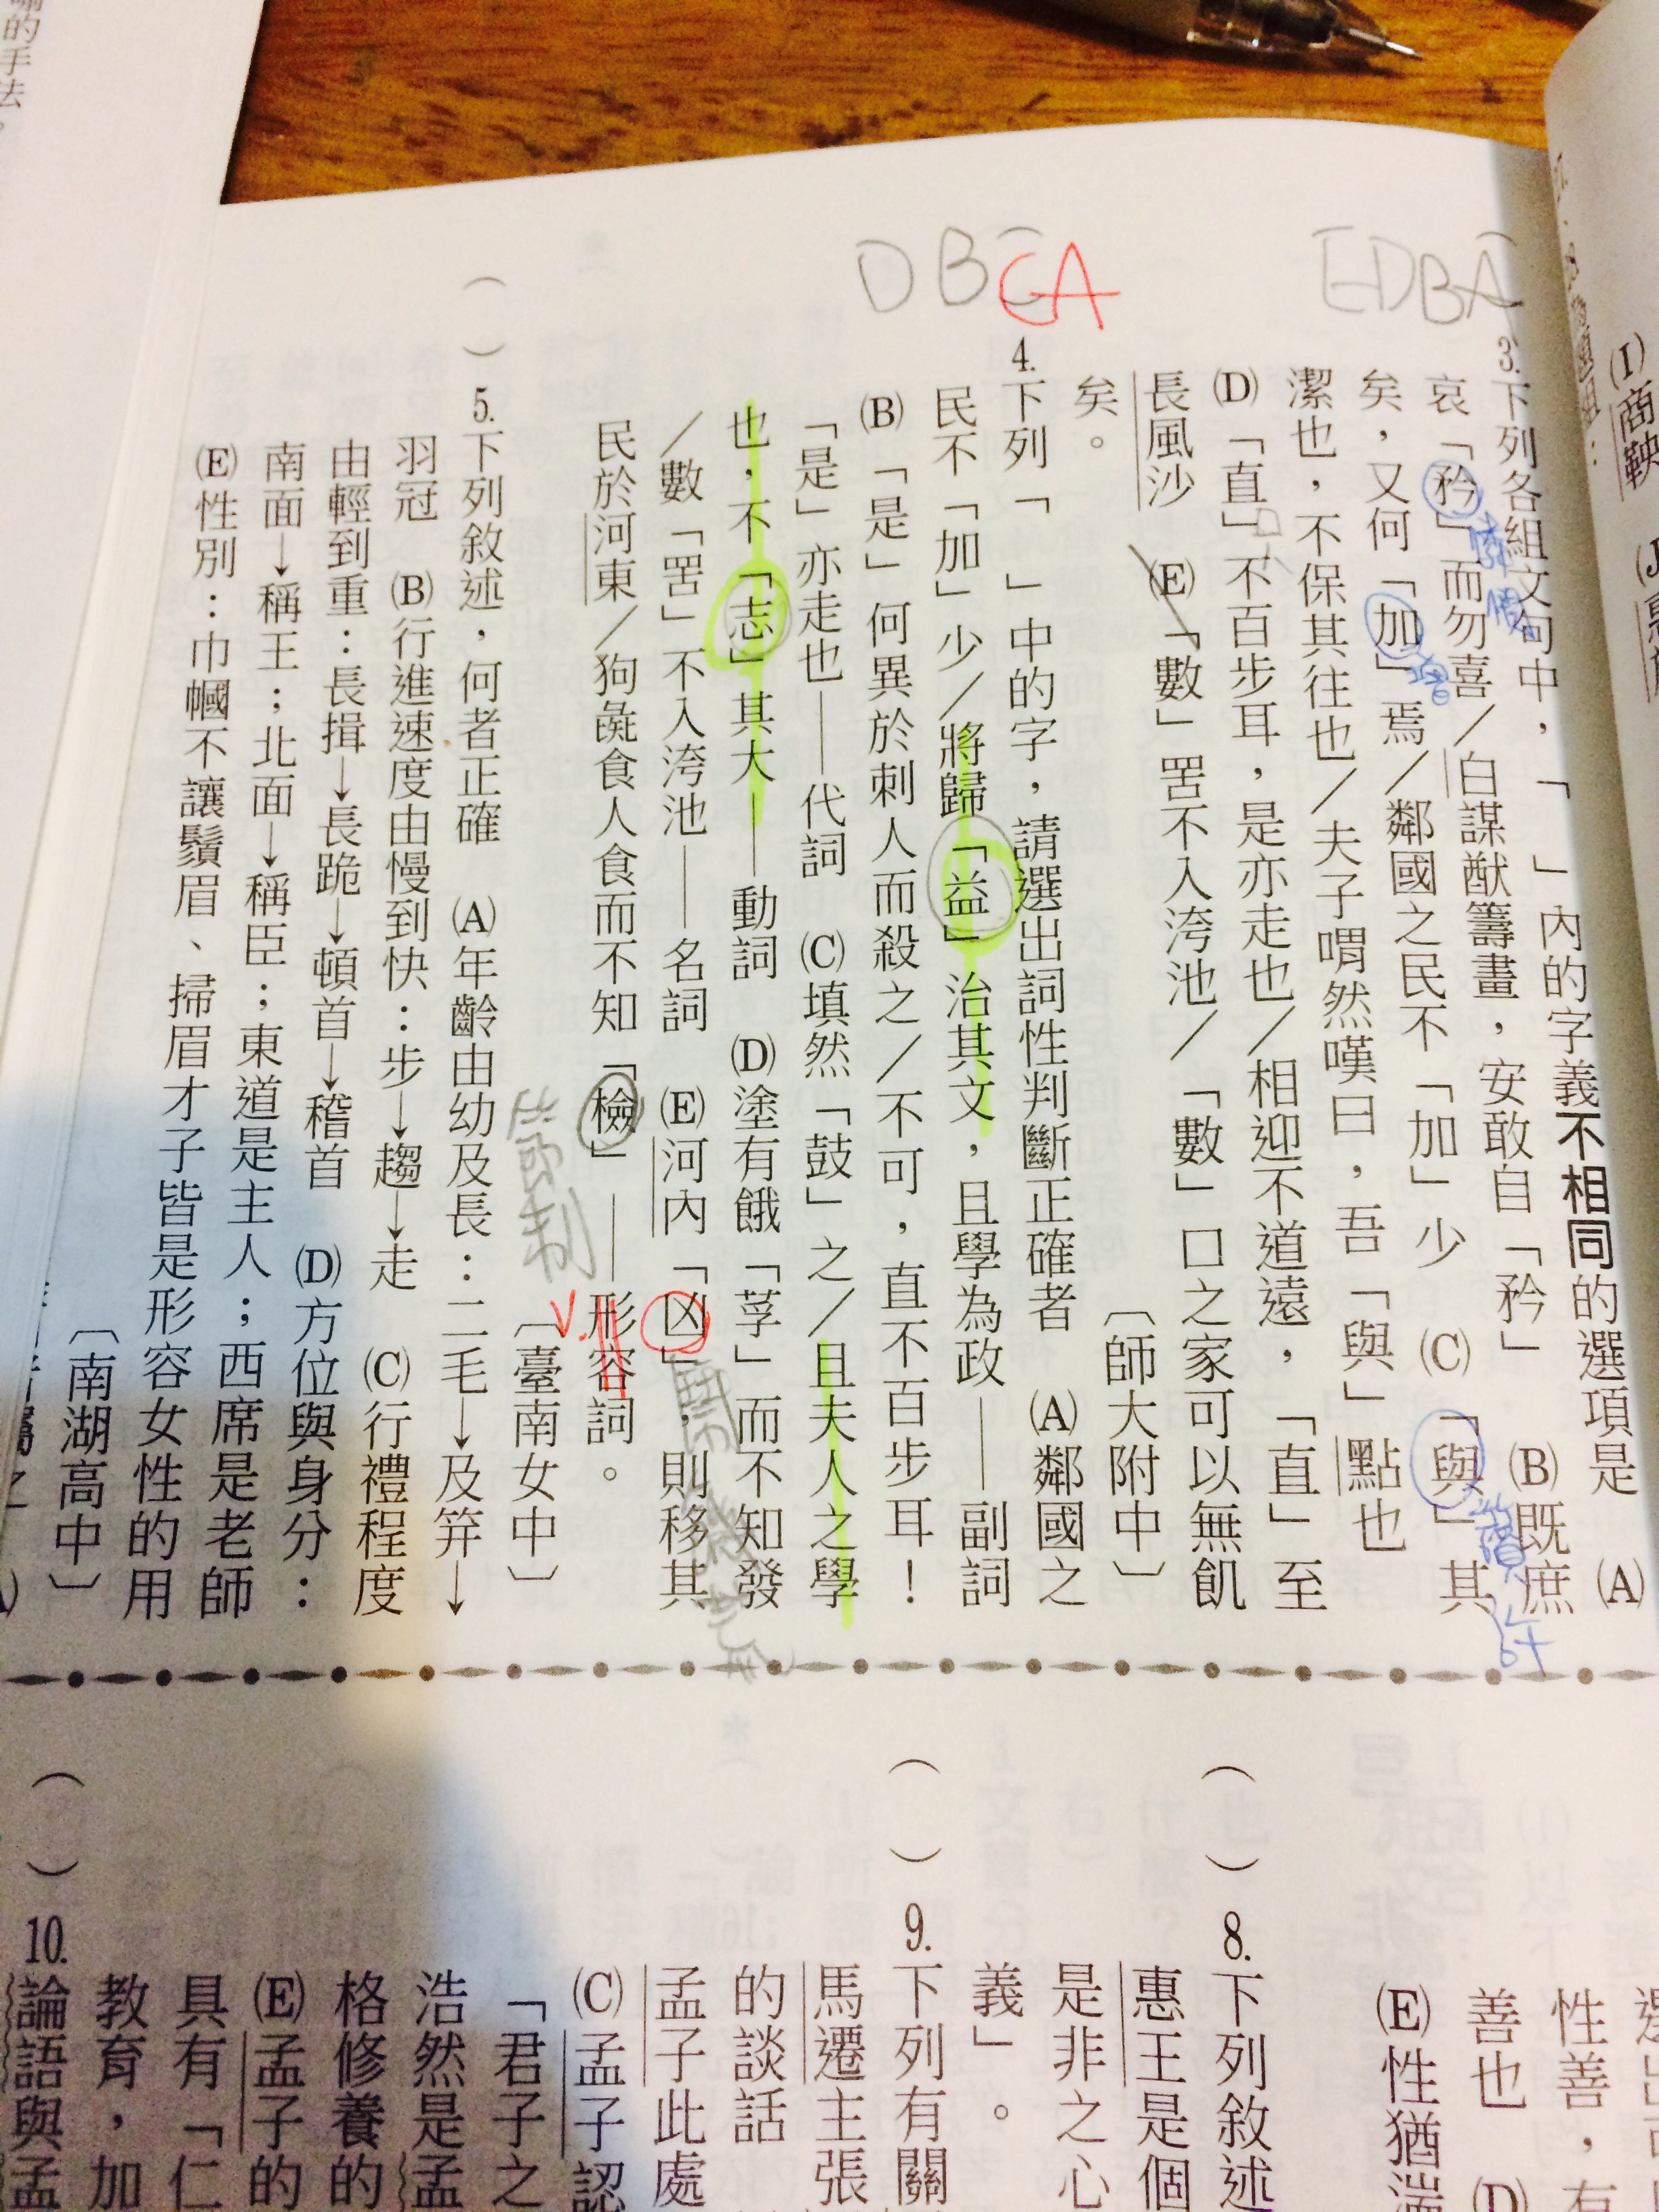 喻的手法。
(I)商鞅
3.下列各組文句中，「　」內的字義不相同的選項是　(A)
哀「矜」而勿喜／白謀猷籌畫，安敢自「矜」　(B)既庶
矣，又何「加」焉／鄰國之民不「加」少　(C)「與」其
潔也，不保其往也／夫子喟然嘆曰，吾「與」點也
(D)「直」不百步耳，是亦走也／相迎不道遠，「直」至
長風沙　(E)「數」罟不入洿池／「數」口之家可以無飢
矣。　〔師大附中〕
EDBA
增
讚許
4.下列「　」中的字，請選出詞性判斷正確者　(A)鄰國之
民不「加」少／將歸「益」治其文，且學為政——副詞
(B)「是」何異於刺人而殺之／不可，直不百步耳！
「是」亦走也——代詞　(C)填然「鼓」之／且夫人之學
也，不「志」其大——動詞　(D)塗有餓「莩」而不知發
／數「罟」不入洿池——名詞　(E)河內「凶」，則移其
民於河東／狗彘食人食而不知「檢」——形容詞。
〔臺南女中〕
DBCA
節制
V.
(　)5.下列敘述，何者正確　(A)年齡由幼及長：二毛→及笄→
羽冠　(B)行進速度由慢到快：步→趨→走　(C)行禮程度
由輕到重：長揖→長跪→頓首→稽首　(D)方位與身分：
南面→稱王；北面→稱臣；東道是主人；西席是老師
(E)性別：巾幗不讓鬚眉、掃眉才子皆是形容女性的用
〔南湖高中〕
性善，有
善也　(D)
(E)性猶湍
(　)8.下列敘述
惠王是個
是非之心
義」。
(　)9.下列有關
馬遷主張
的談話
孟子此處
(C)孟子認
「君子之
浩然是孟
格修養的
(E)孟子的
具有「仁
教育，加
(　)10.論語與孟